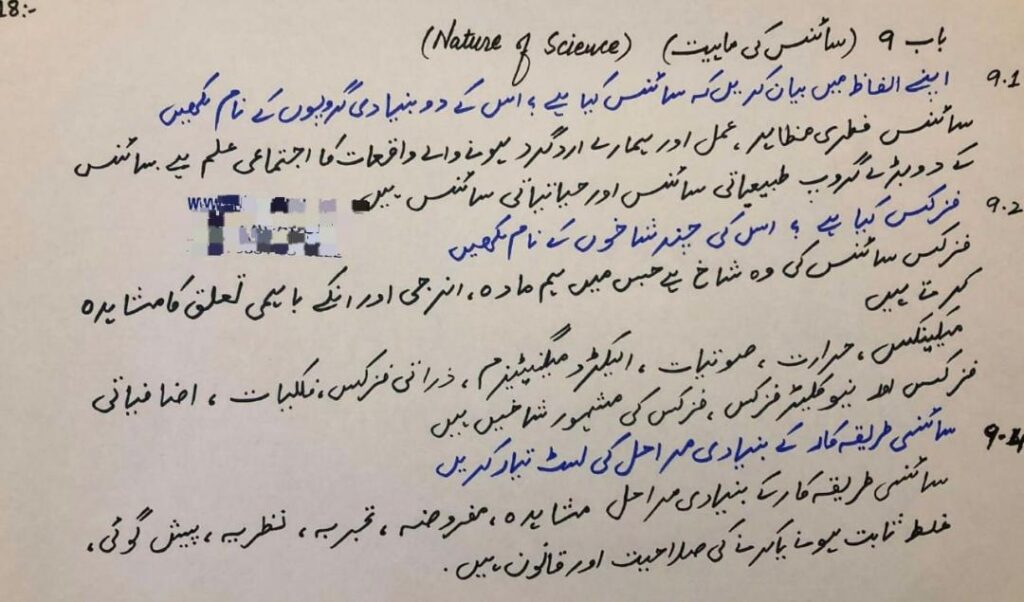 18:-
باب 9 (سائنس کی ماہیت) (Nature of Science)
9.1 اپنے الفاظ میں بیان کریں کہ سائنس کیا ہے؟ اس کے دو بنیادی گروپوں کے نام لکھیں
سائنس فطری مظاہر، عمل اور ہمارے اردگرد ہونے والے واقعات کا اجتماعی علم ہے۔ سائنس
کے دو بڑے گروپ طبیعیاتی سائنس اور حیاتیاتی سائنس ہیں
www
9.2 فزکس کیا ہے؟ اس کی چند شاخوں کے نام لکھیں
فزکس سائنس کی وہ شاخ ہے جس میں ہم مادہ، انرجی اور انکے باہمی تعلق کا مشاہدہ
کرتے ہیں
میکینکس، حرارت، صوتیات، الیکٹرو میگنیٹیزم، ذراتی فزکس، فلکیات، اضافیاتی
فزکس اور نیوکلیئر فزکس، فزکس کی مشہور شاخیں ہیں
سائنسی طریقہ کار کے بنیادی مراحل کی لسٹ تیار کریں
سائنسی طریقہ کار کے بنیادی مراحل مشاہدہ، مفروضہ، تجربہ، نظریہ، پیش گوئی،
غلط ثابت ہونے یا کرنے کی صلاحیت اور قانون ہیں۔